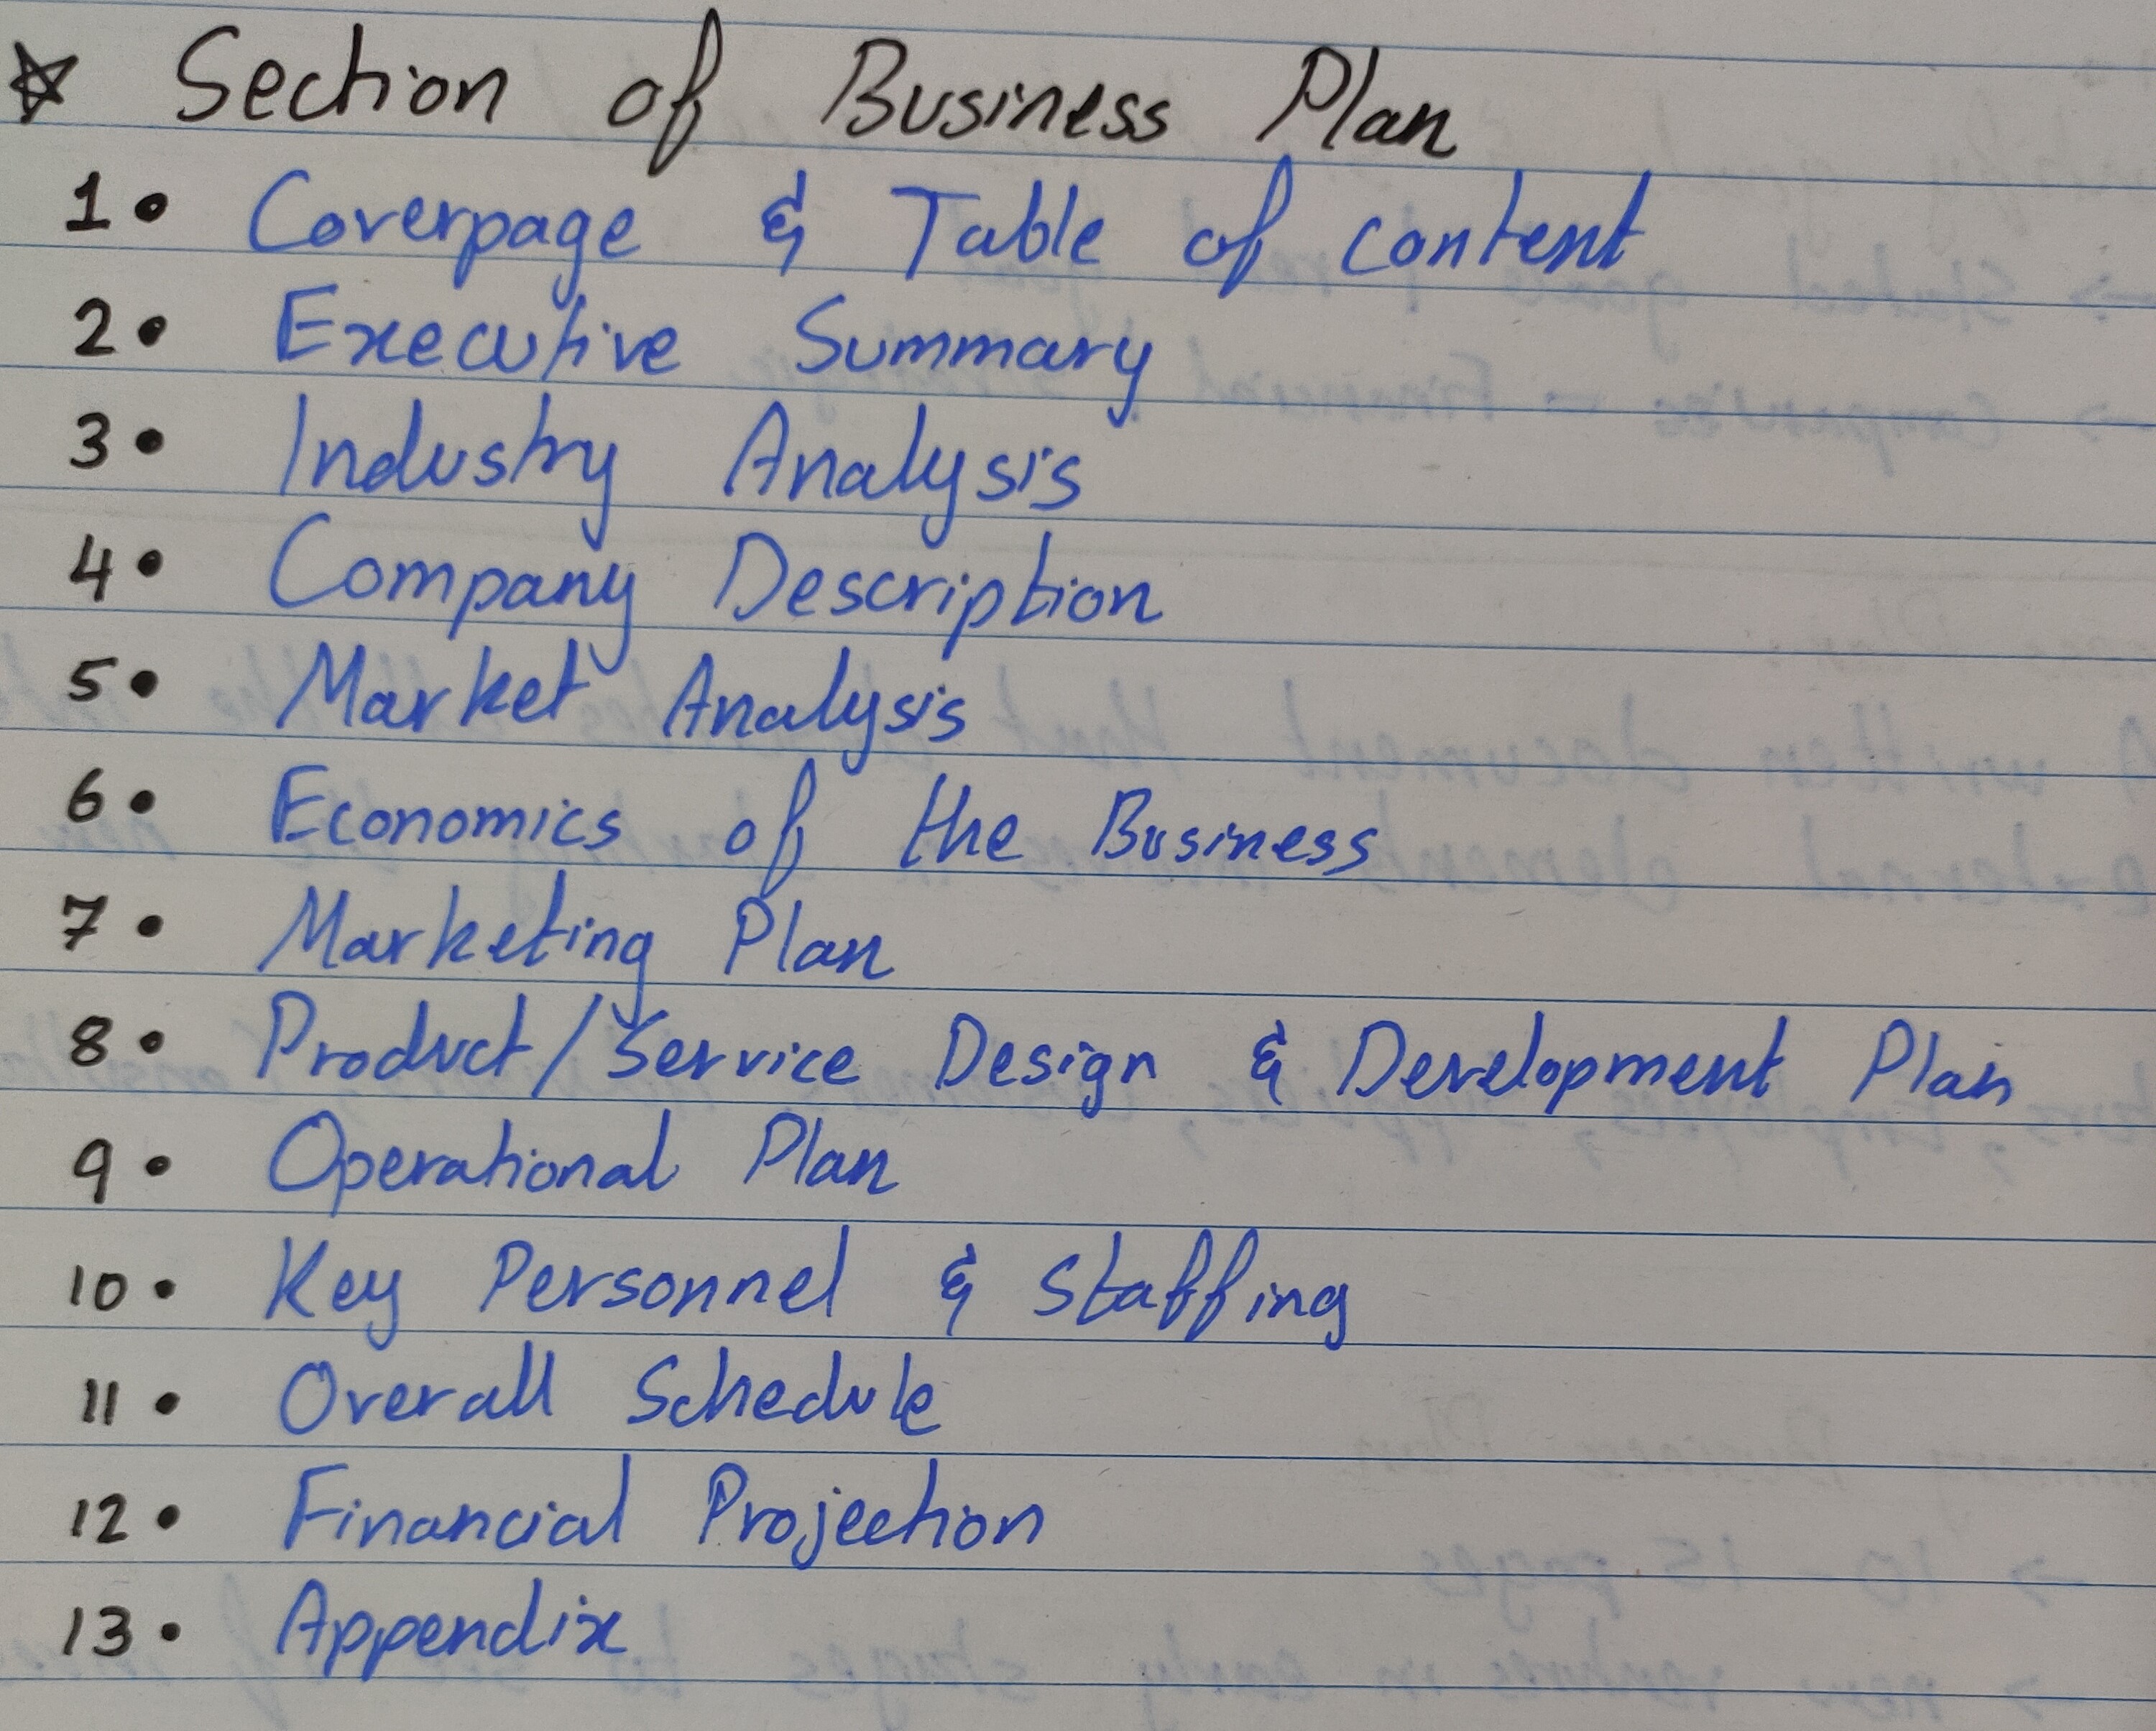 ☆ Section of Business Plan
1• Coverpage & Table of content
2• Executive Summary
3• Industry Analysis
4• Company Description
5• Market Analysis
6• Economics of the Business
7• Marketing Plan
8• Product/Service Design & Development Plan
9• Operational Plan
10• Key Personnel & Staffing
11• Overall Schedule
12• Financial Projection
13• Appendix